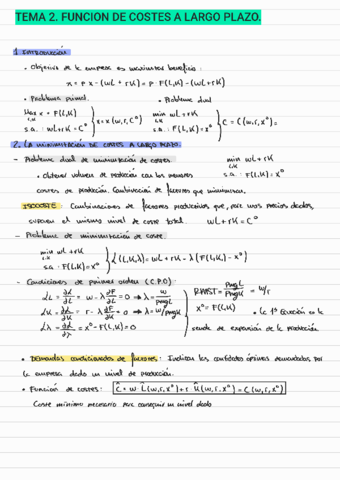 TEMA 2. FUNCION DE COSTES A LARGO PLAZO.
1. INTRODUCCIÓN
• Objetivo de la empresa es maximizar beneficio:
π = p x - (wL + rK) = p · F(L,K) - (wL + rK)
• Problema primal • Problema dual
Max x = F(L,K) L,K s.a.: wL + rK = C⁰ } x = x(w,r,C⁰) min wL + rK L,K s.a.: F(L,K) = x⁰ } C = C(w,r,x⁰) =
2. LA MINIMIZACIÓN DE COSTES A LARGO PLAZO
- Problema dual de minimización de costes. min wL + rK L,K
• Obtener volumen de producción con los menores s.a.: F(L,K) = x⁰
costes de producción. Combinación de factores que minimizan.
ISOCOSTE: Combinaciones de factores productivos que, para unos precios dados,
suponen el mismo nivel de coste total. wL + rK = C⁰
- Problema de minimización de coste
min wL + rK L,K s.a.: F(L,K) = x⁰ } ℒ(L,K,λ) = wL + rK - λ [F(L,K) - x⁰)
- Condiciones de primer orden (C.P.O):
ℒL = ∂ℒ/∂L = w - λ ∂F/∂L = 0 → λ = w/PmgL
ℒK = ∂ℒ/∂K = r - λ ∂F/∂K = 0 → λ = w/PmgK
ℒλ = ∂ℒ/∂λ = x⁰ - F(L,K) = 0
RMST = PmgL/PmgK = w/r
x⁰ = F(L,K) • La 1ª Ecuación es la
senda de expansión de la producción.
• Demandas condicionadas de factores: Indican las cantidades óptimas demandadas por
la empresa dado un nivel de producción.
• Función de costes: Ĉ = w · L̂(w,r,x⁰) + r K̂(w,r,x⁰) = C(w,r,x⁰)
Coste mínimo necesario para conseguir un nivel dado